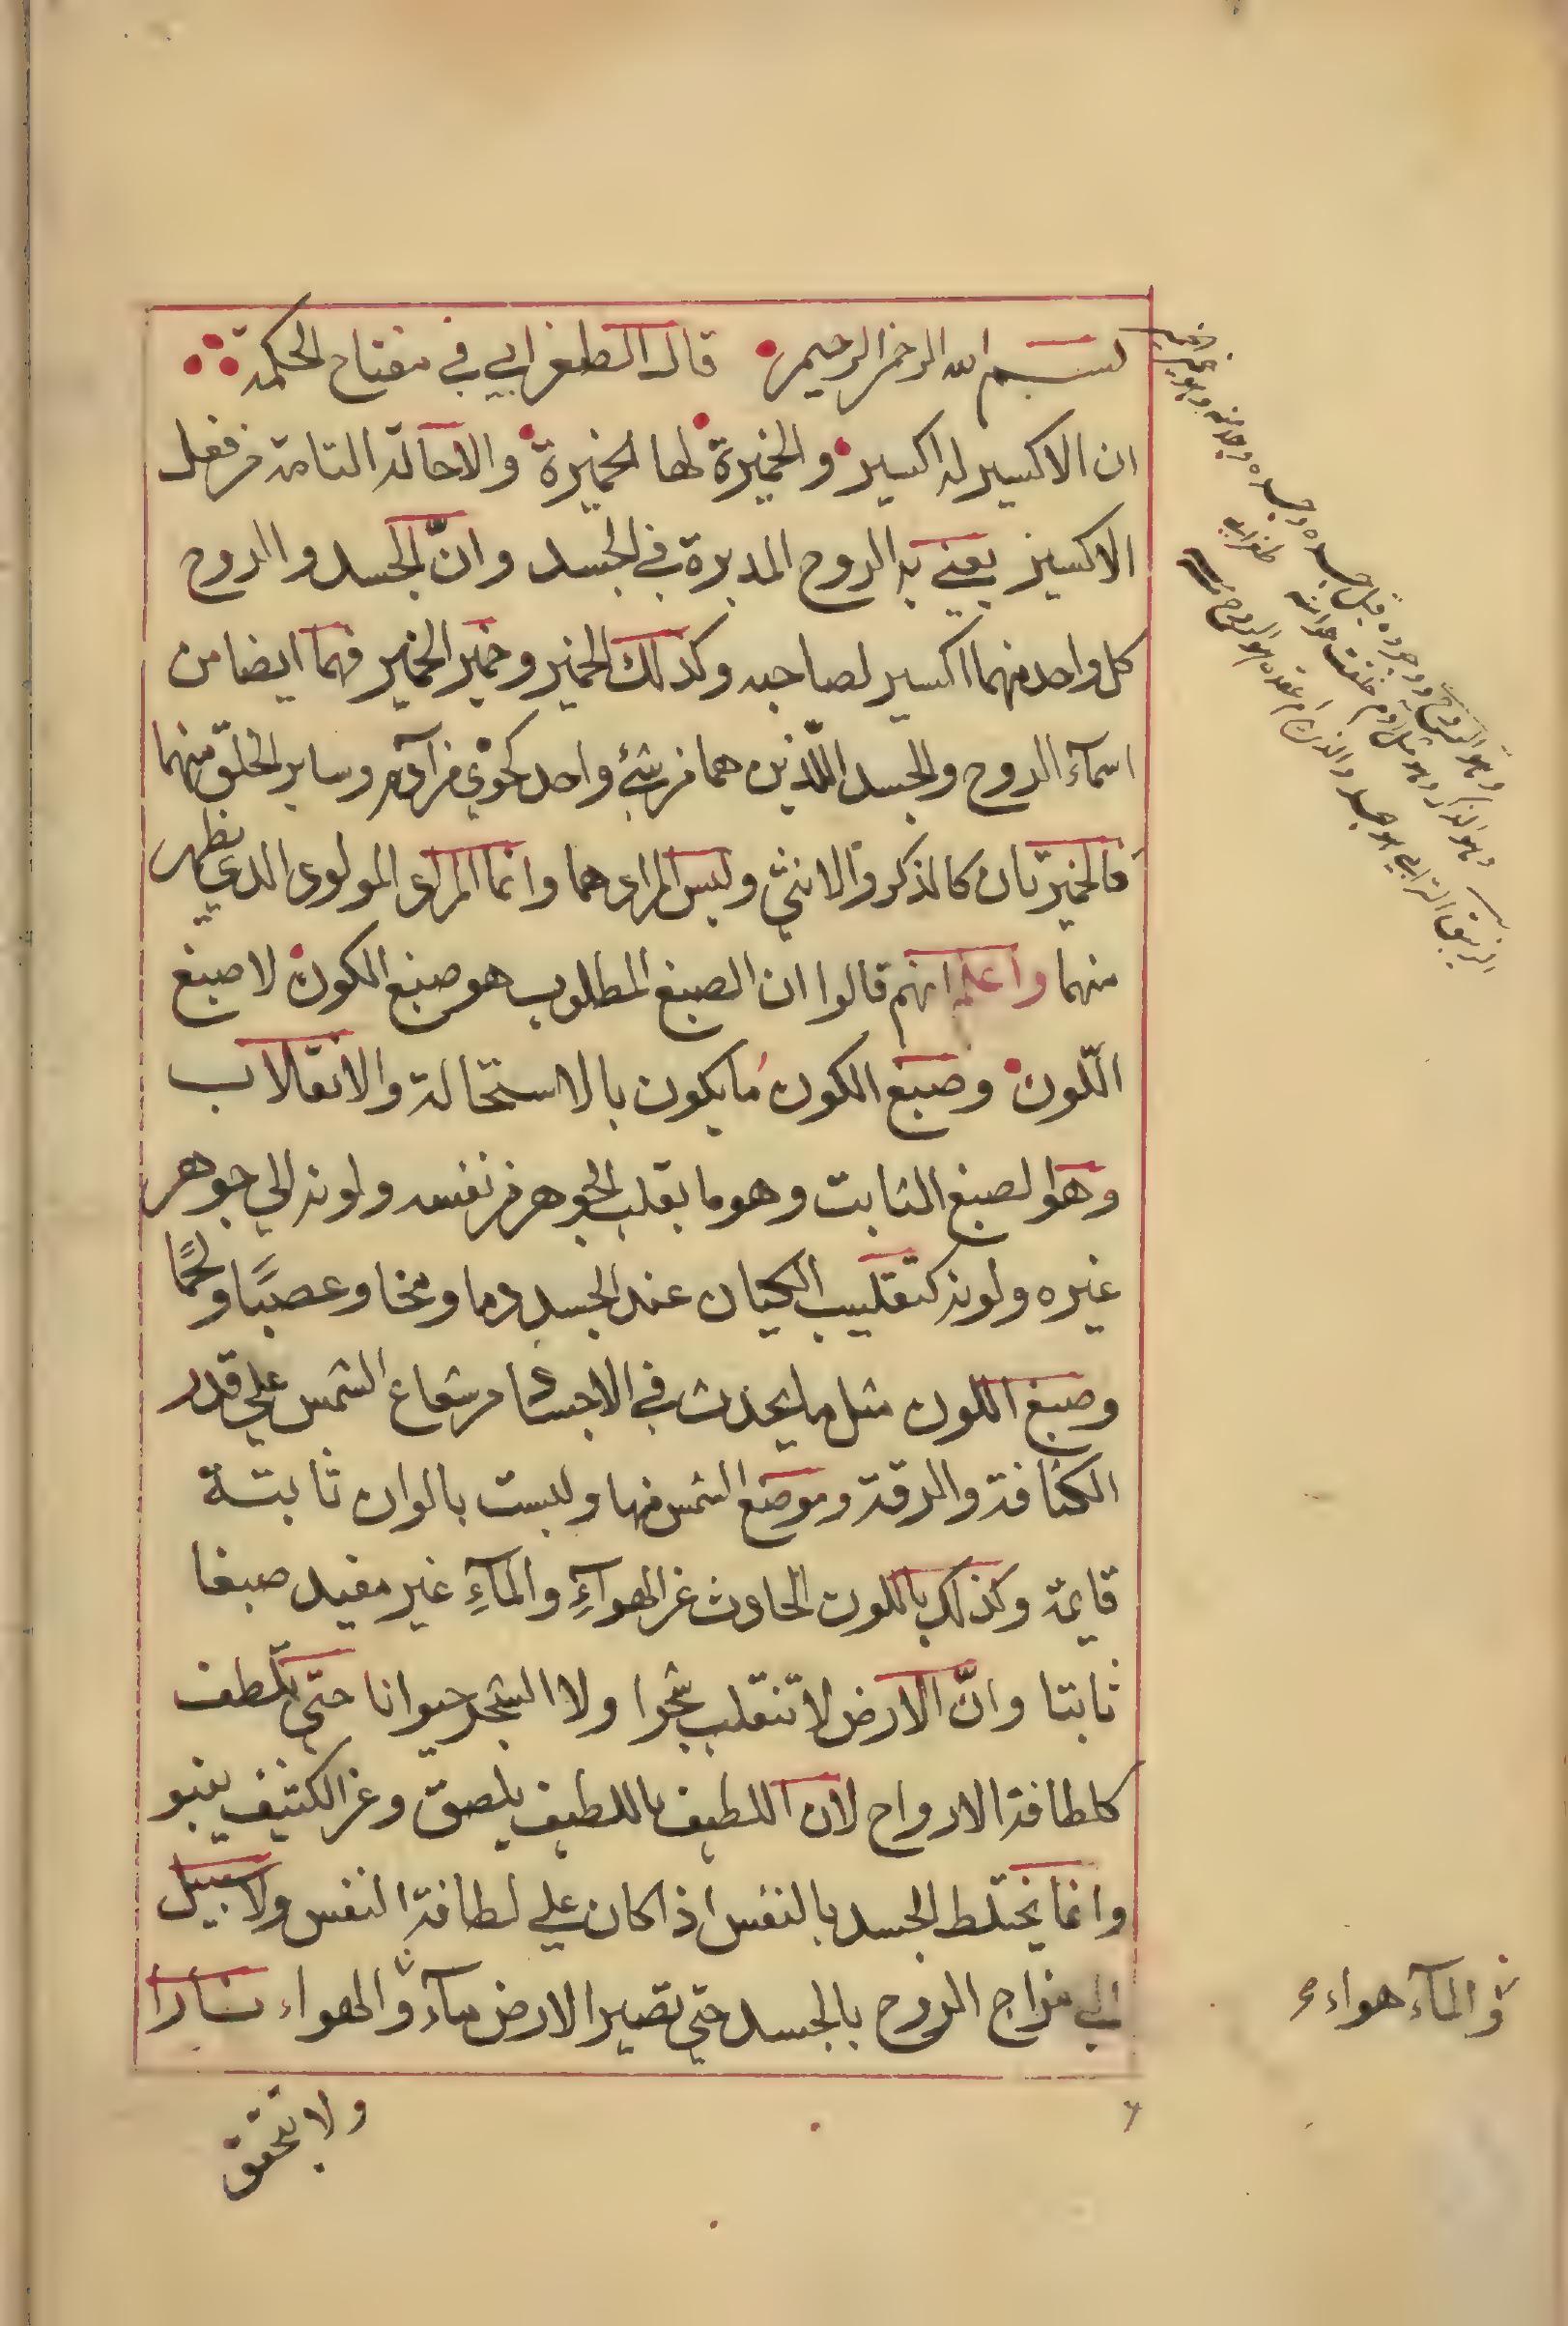 بسم الله الرحمن الرحيم قال الطغرايي في مفتاح الحكمة
ان الاكسير له اكسير والخميرة لها خميرة والاحالة التامة من فعل
الاكسير يعني به الروح المدبرة في الجسد وانّ الجسد والروح
كل واحد منهما اكسير لصاحبه وكذلك الخمير وخمير الخمير فهما ايضا من
اسمآء الروح والجسد اللّذين هما من شئ واحد كحوّي من آدم وساير الخلق منهما
فالخميرتان كالذكر والانثي وليس المراد هما وانما المراد المولود الدي يظهر
منهما واعلم انهم قالوا ان الصبغ المطلوب هو صبغ الكون لا صبغ
اللّون وصبغ الكون ما يكون بالاستحالة والانقلاب
وهو الصبغ الثابت وهو ما يقلب الجوهر من نفسه ولونه الي جوهر
غيره ولونه كتقليب الكيان عند الجسد دما ومخا وعصبًا ولحمًا
وصبغ اللون مثل ما يحدث في الاجساد من شعاع الشمس علي قدر
الكثافة والرقة وموضع الشمس منها وليست بالوان ثابتة
قايمة وكذلك باللون الحادث عن الهوآءِ والمآءِ غير مفيد صبغا
ثابتا وانّ الارض لا تنقلب شجرا ولا الشجر حيوانا حتي تلطف
كلطافة الارواح لان اللطيف باللطيف يلصق وعن الكثيف ينبو
وانما يختلط الجسد بالنفس اذا كان علي لطافة النفس ولا سبيل
الي مزاج الروح بالجسد حتي تصير الارض مآء والهواء نارا
والمآء هواء
ولا يتحقق